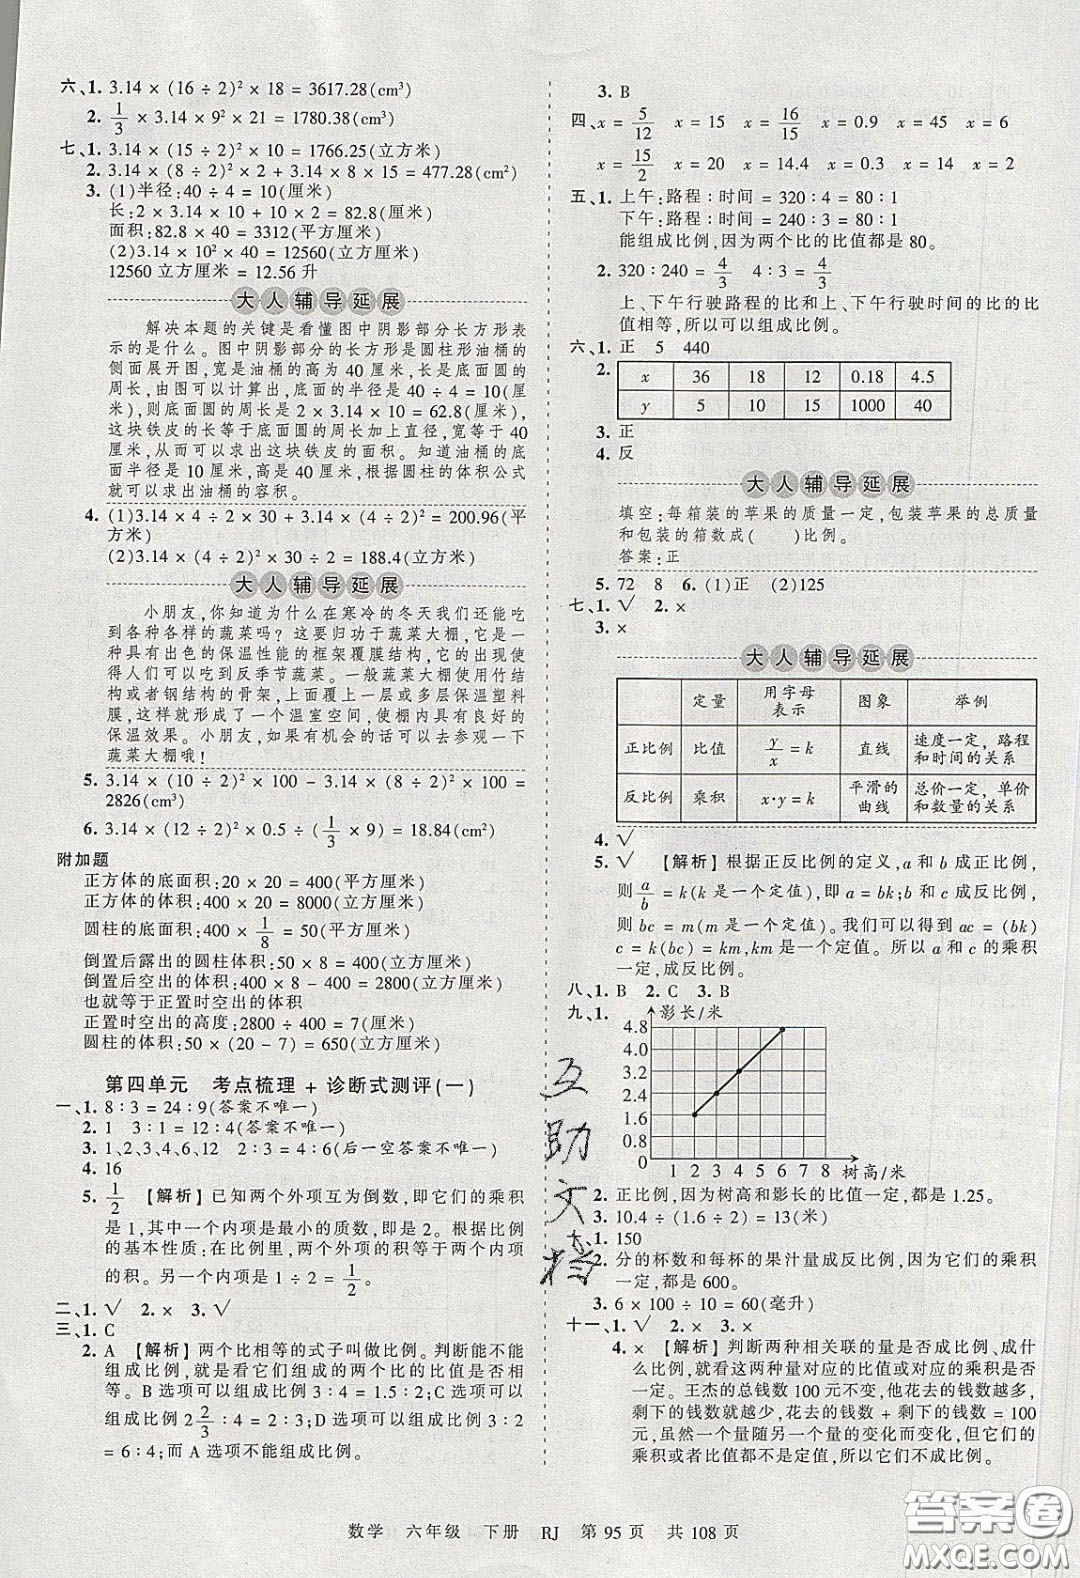 六、1. 3.14 × (16 ÷ 2)² × 18 = 3617.28(cm³)
2. 1/3 × 3.14 × 9² × 21 = 1780.38(cm³)
七、1. 3.14 × (15 ÷ 2)² × 10 = 1766.25(立方米)
2. 3.14 × (8 ÷ 2)² × 2 + 3.14 × 8 × 15 = 477.28(cm²)
3. (1)半径:40 ÷ 4 = 10(厘米)
长:2 × 3.14 × 10 + 10 × 2 = 82.8(厘米)
面积:82.8 × 40 = 3312(平方厘米)
(2)3.14 × 10² × 40 = 12560(立方厘米)
12560 立方厘米 = 12.56 升
大人辅导延展
解决本题的关键是看懂图中阴影部分长方形表
示的是什么。图中阴影部分的长方形是圆柱形油桶的
侧面展开图,油桶的高为 40 厘米,长是底面圆的
周长,由图可以计算出,底面的半径是 40 ÷ 4 = 10(厘
米),则底面圆的周长是 2 × 3.14 × 10 = 62.8(厘米),
这块铁皮的长等于底面圆的周长加上直径,宽等于 40
厘米,从而可以求出这块铁皮的面积。知道油桶的底
面半径是 10 厘米,高是 40 厘米,根据圆柱的体积公式
就可以求出油桶的容积。
4. (1)3.14 × 4 ÷ 2 × 30 + 3.14 × (4 ÷ 2)² = 200.96(平
方米)
(2)3.14 × (4 ÷ 2)² × 30 ÷ 2 = 188.4(立方米)
大人辅导延展
小朋友,你知道为什么在寒冷的冬天我们还能吃
到各种各样的蔬菜吗?这要归功于蔬菜大棚,它是一
种具有出色的保温性能的框架覆膜结构,它的出现使
得人们可以吃到反季节蔬菜。一般蔬菜大棚使用竹结
构或者钢结构的骨架,上面覆上一层或多层保温塑料
膜,这样就形成了一个温室空间,使棚内具有良好的
保温效果。小朋友,如果有机会的话可以去参观一下
蔬菜大棚哦!
5. 3.14 × (10 ÷ 2)² × 100 - 3.14 × (8 ÷ 2)² × 100 =
2826(cm³)
6. 3.14 × (12 ÷ 2)² × 0.5 ÷ (1/3 × 9) = 18.84(cm²)
附加题
正方体的底面积:20 × 20 = 400(平方厘米)
正方体的体积:400 × 20 = 8000(立方厘米)
圆柱的底面积:400 × 1/8 = 50(平方厘米)
倒置后露出的圆柱体积:50 × 8 = 400(立方厘米)
倒置后空出的体积:400 × 8 - 400 = 2800(立方厘米)
也就等于正置时空出的体积
正置时空出的高度:2800 ÷ 400 = 7(厘米)
圆柱的体积:50 × (20 - 7) = 650(立方厘米)
第四单元 考点梳理 + 诊断式测评(一)
一、1. 8∶3 = 24∶9(答案不唯一)
2. 1 3∶1 = 12∶4(答案不唯一)
3. 1、2、3、4、6、12 2∶3 = 4∶6(后一空答案不唯一)
4. 16
5. 1/2 [解析]已知两个外项互为倒数,即它们的乘积
是 1,其中一个内项是最小的质数,即是 2。根据比例
的基本性质:在比例里,两个外项的积等于两个内项
的积。可知另一个内项是 1 ÷ 2 = 1/2。
二、1. √ 2. × 3. √
三、1. C
2. A [解析]两个比相等的式子叫做比例。判断能不能
组成比例,就是看它们组成的两个比的比值是否相
等。B 选项可以组成比例 3∶4 = 1.5∶2;C 选项可以
组成比例 2 2/3∶4 = 2∶3;D 选项可以组成比例 3∶2
= 6∶4;而 A 选项不能组成比例。
3. B
四、x = 5/12 x = 15 x = 16/15 x = 0.9 x = 45 x = 6
x = 15/2 x = 20 x = 14.4 x = 0.3 x = 14 x = 2
五、1. 上午:路程∶时间 = 320∶4 = 80∶1
下午:路程∶时间 = 240∶3 = 80∶1
能组成比例,因为两个比的比值都是 80。
2. 320∶240 = 4/3 4∶3 = 4/3
上、下午行驶路程的比和上、下午行驶时间的比的比
值相等,所以可以组成比例。
六、1. 正 5 440
2. x 36 18 12 0.18 4.5
y 5 10 15 1000 40
3. 正
4. 反
大人辅导延展
填空:每箱装的苹果的质量一定,包装苹果的总质量
和包装的箱数成( )比例。
答案:正
5. 72 8 6. (1)正 (2)125
七、1. √ 2. ×
3. ×
大人辅导延展
定量 用字母表示 图象 举例
正比例 比值 y/x = k 直线 速度一定,路程和时间的关系
反比例 乘积 x·y = k 平滑的曲线 总价一定,单价和数量的关系
4. √
5. √ [解析]根据正反比例的定义,a 和 b 成正比例,
则 a/b = k(k 是一个定值),即 a = bk;b 和 c 成反比例,
则 bc = m(m 是一个定值)。我们可以得到 ac = (bk)
c = k(bc) = km,km 是一个定值。所以 a 和 c 的乘积
一定,成反比例。
八、1. B 2. C 3. B
九、1. 影长/米
4.8
4.0
3.2
2.4
1.6
0.8
0 1 2 3 4 5 6 7 8 树高/米
2. 正比例,因为树高和影长的比值一定,都是 1.25。
3. 10.4 ÷ (1.6 ÷ 2) = 13(米)
十、1. 150
2. 分的杯数和每杯的果汁量成反比例,因为它们的乘积
一定,都是 600。
3. 6 × 100 ÷ 10 = 60(毫升)
十一、1. √ 2. × 3. ×
4. × [解析]判断两种相关联的量是否成比例,成什
么比例,就看这两种量对应的比值或对应的乘积是否
一定。王杰的总钱数 100 元不变,他花去的钱数越多,
剩下的钱数就越少,花去的钱数 + 剩下的钱数 = 100
元,虽然一个量随另一个量的变化而变化,但它们的
乘积或者比值都不是定值,所以它们不成比例。
互
助
文
档
数学 六年级 下册 RJ 第 95 页 共 108 页
答案圈
MXQE.COM